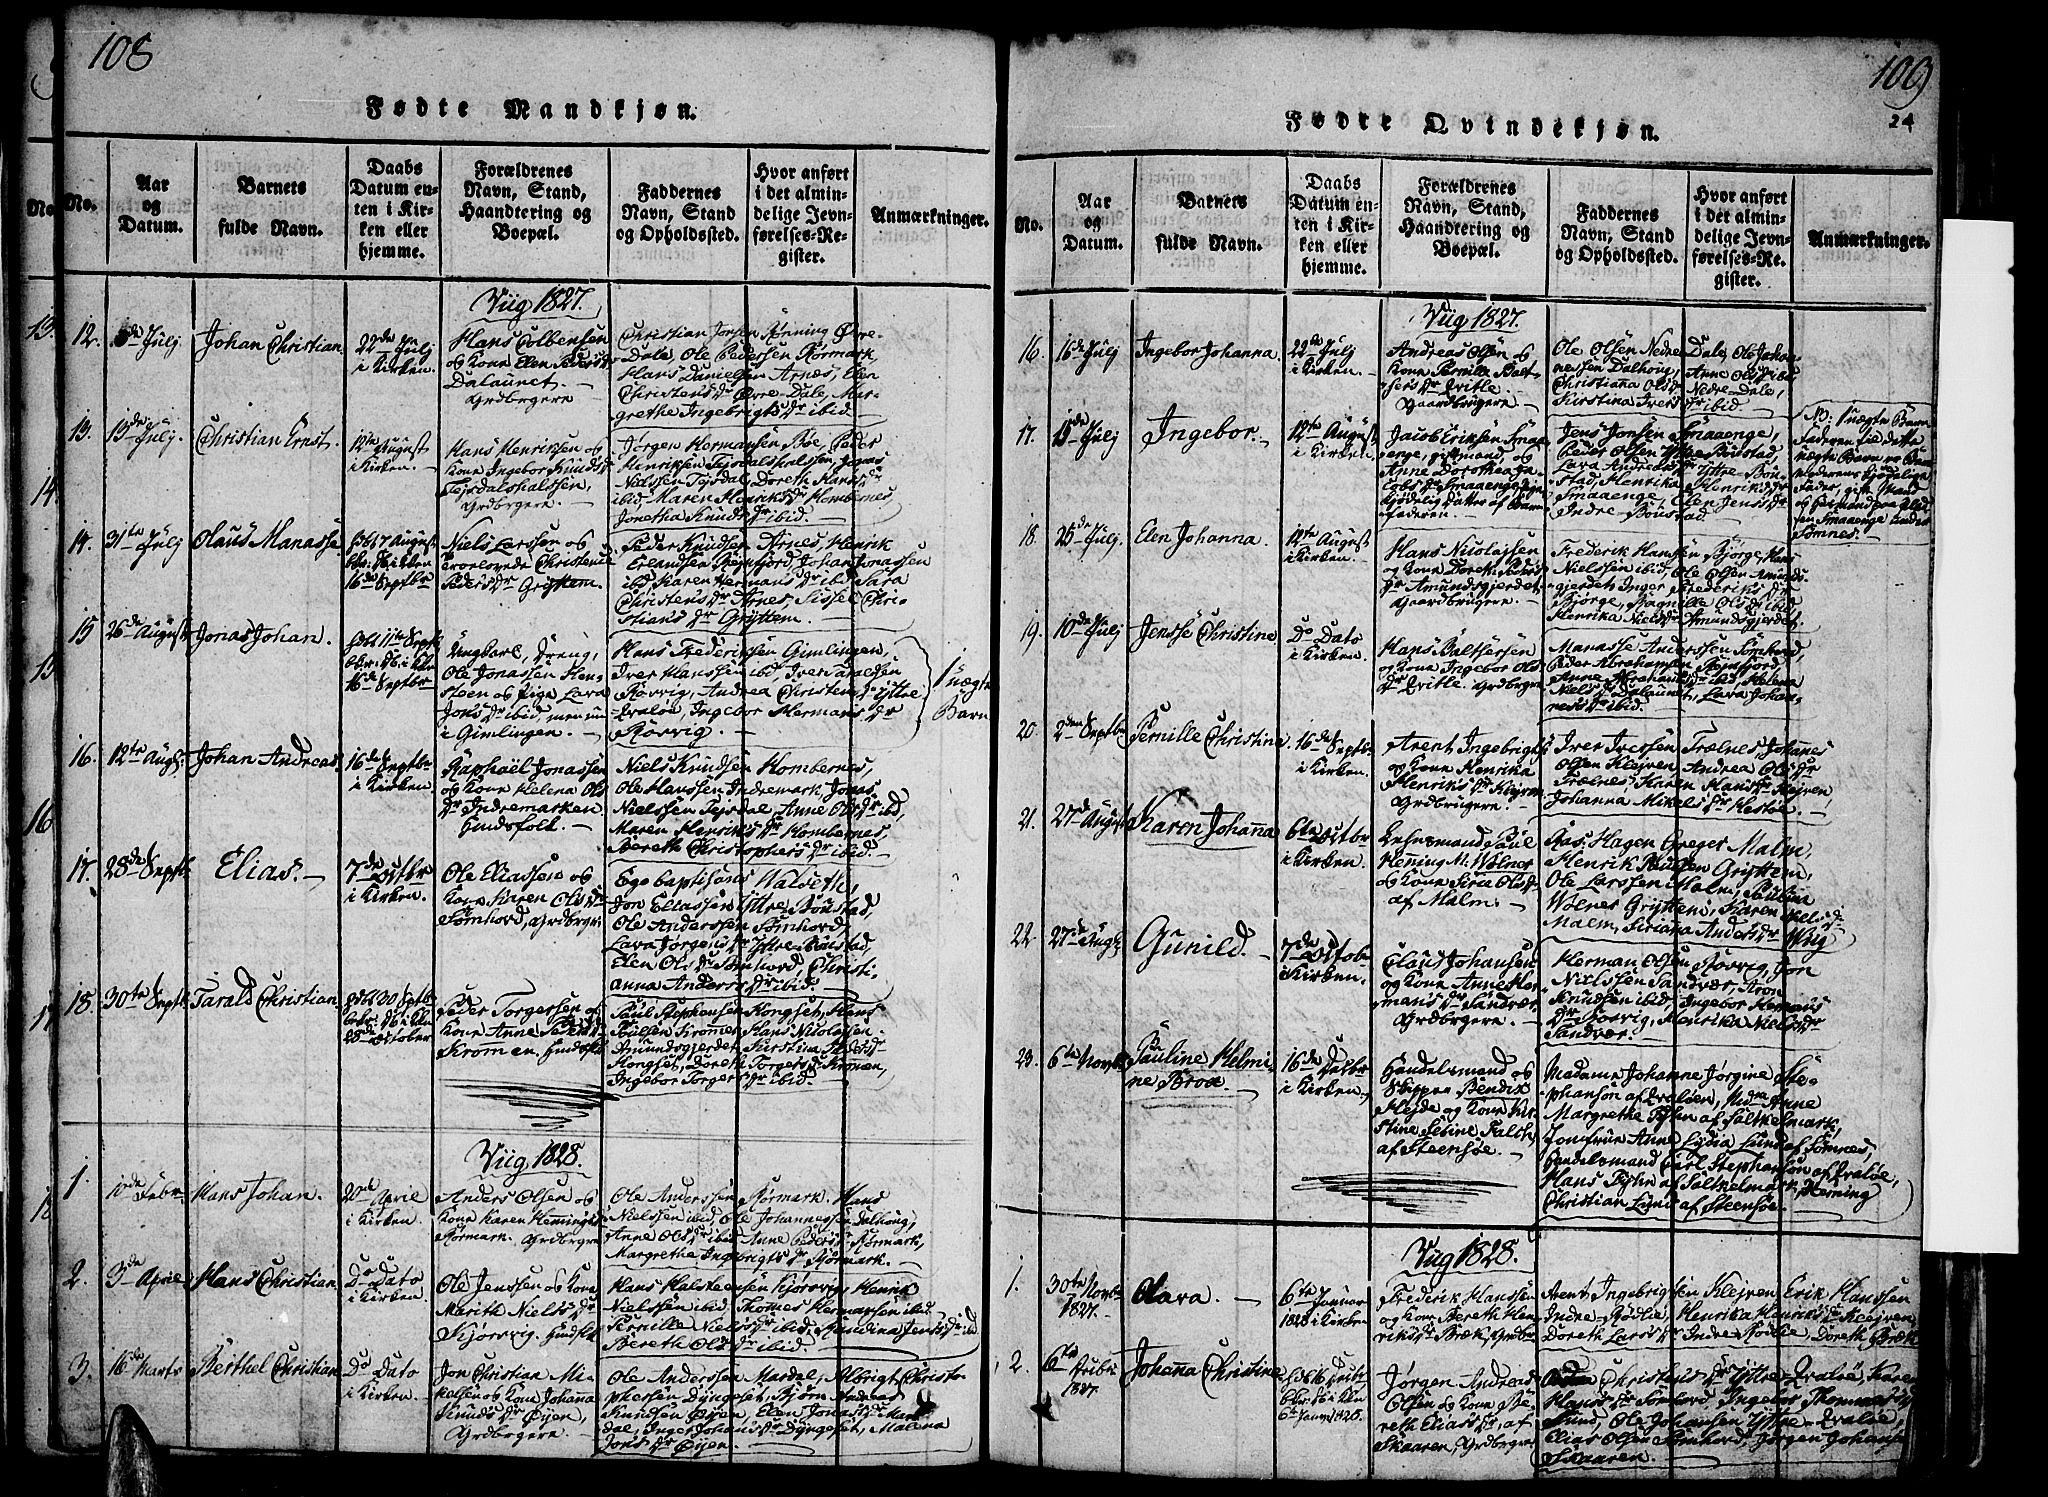 108
Fødte Mandkjøn.
No.
No.
Aar
og
Datum.
Barnets
fulde Navn.
Daabs
Datum en-
ten i Kir-
ken eller
hjemme.
Forældrenes
Navn, Stand,
Haandtering og
Boepæl.
Faddernes
Navn, Stand
og Opholdssted.
Hvor anført
i det almin-
delige Jevn-
førelses-Re-
gister.
Anmærkninger.
Viig 1827.
12.
Julj
Johan Christian.
22de Julj
i Kirken.
Hans Colbensen
og Kone Elen Peders
Dalaunet.
Grdbrgere
Christian Jonsen Rønning Øvre-
Dale, Ole Pedersen Rørmark,
Hans Danielsen Arnæs, Elen
Christensdr Øvre-Dale, Mar-
grethe Ingebrigtsdr ibid
13.
13de Julj.
Christian Ernst.
12te August
i Kirken.
Hans Henriksen og
Kone Ingebor Knuds
Tejsdalshalssen,
Grdbrgere
Jørgen Hermansen Bøe, Peder
Henriksen Tejsdalshalssen, Jonas
Nielssen Tejsdal, Doreth Hansdr
ibid, Maren Henriksdr Hombernes,
Jonetha Knudsdr ibid.
14.
31te Julj
Olaus Manasse
16de Septbr
Niels Larssen og
trovlovede Christense
Pedersdr Gryttem.
Peder Knudsen Arnes, Henrik
Erlandsen Stemfjord, Johan Jonassen
ibid Karen Hermansdr ibid Sara
Christensdr Arnes, Sissel Chri-
stiansdr Gryttem.
15
26de August
Jonas Johan.
16de Septbr
Ungkarl, Dreng,
Ole Jonassen Hen-
støen og Pige Lava
Jonsdr ibid, men nu
i Gimlingen.
Hans Frederiksen Gimlingen,
Iver Hanssen ibid, Iver Taraldsen
Rørvig, Andrea Christensdr Ytte
Qvaløe, Ingebor Hermansdr
Rørvig.
1 uægte
Barn
16.
12te Augst.
Johan Andreas
16de Septbr
i Kirken.
Raphaël Jonassen
og Kone Helena Ols
dr Indremarken
Huusfolk.
Niels Knudsen Hombernes,
Ole Hanssen Indremark, Jonas
Nielssen Tejsdal, Anne Olsdr ibid,
Maren Henriksdr Hombernes,
Bereth Christophersdr ibid.
17.
28de Septbr
Elias.
7de Octbr
i Kirken.
Ole Eliassen og
Kone Karen Olsdr
Sømhord, Grdbrger
Ego baptisans Walseth,
Jon Eliassen Yttre Bøustad,
Ole Anderssen Sømhord,
Lava Jørgensdr Yttre Bøustad,
Elen Olsdr Sømhord, Christi-
anna Andersdr ibid.
18.
30te Septb
Tarald Christian
28de October
Peder Torgerssen og
Kone Anne Peders
Kromen. Huusfolk
Paul Stephansen Hongset, Hans
Poulsen Kromen Hans Nicolajsen
Amundsgjerdet Kirstina Pedersdr
Hongset, Doreth Torgersdr Kromen,
Ingebor Torgersdr ibid.
Viig 1828.
1.
10de Febr
Hans Johan.
20de April
i Kirken.
Anders Olsen og
Kone Karen Hemings
Rørmark. Grdbrgere
Ole Anderssen Rørmark. Hans
Nielssen ibid, Ole Johannessen Dalhoug,
Anne Olsdr ibid Anne Pedersdr Rørmark,
Margrethe Ingebrigtsdr Rørmark.
2.
3de April
Hans Christian
Do Dato
i Kirken.
Ole Jenssen og Kone
Marith Nielsdr
Kjørsvig. Huusfolk
Hans Halsteensen Kjørsvig, Henrik
Nielssen ibid Thomes Hermanssen ibid
Pernille Nielsdr ibid, Gundina Jensdr ibid
Bereth Olsdr ibid.
3.
16de Marts
Berthel Christian
Do Dato
i Kirken.
Jon Christian Mi-
kelsen og Kone Johana
Knudsdr Øyen,
Grdbrgere
Ole Anderssen Mardal, Albrigt Christo-
phersen Dyngeset, Bjørn Andreas
Knudsen Øyen, Elen Jonasdr Mar-
dal, Inger Johansdr Dyngeset, Malena
Jonsdr Øyen.
109
24
Fødte Qvindekjøn.
No.
Aar
og
Datum.
Barnets
fulde Navn.
Daabs
Datum en-
ten i Kir-
ken eller
hjemme.
Forældrenes
Navn, Stand,
Haandtering og
Boepæl.
Faddernes
Navn, Stand
og Opholdssted.
Hvor anført
i det almin-
delige Jevn-
førelses-Re-
gister.
Anmærkninger.
Viig 1827.
16.
16de Julj
Ingebor Johanna
22de Julj
i Kirken.
Andreas Olsen og
Kone Pernille Balt-
sersdr Qvitle.
Gaardbrugere
Ole Olsen Nedre Dale, Ole Johan-
nessen Dalhoug, Anne Olsdr ibid
Christiana Olsdr Nedre-Dale,
Kirstina Iversdr ibid
17.
15de Julj
Ingebor.
12te August
i Kirken.
Jacob Eriksen Smaa-
enge, gift mand og
Anne Dorothea Ja-
cobsdr Smaaenge
kjødelig Datter af Barne-
faderen.
Jens Jonsen Smaaenge,
Peder Olsen Yttre Bøustad,
Lava Andreasdr Yttre Bøu-
stad, Henrika Henriksdr
Smaaenge, Elen Jensdr
Indre Bøustad.
NB. 1 uægte Barn
Faderen til dette
uægte Barn er Barne-
moderens kjødelige
Fader, gift Mand
og Huusmand paa Plad-
sen Smaaenge under
Sømnes.
18.
25de Julj.
Elen Johanna.
12te August
i Kirken.
Hans Nicolajsen
og Kone Doreth Peders
dr Amundsgjerdet,
Gaardbrugere
Frederik Hanssen Bjørge, Hans
Nielssen ibid Ole Olsen Amunds-
gjerdet, Inger Frederiksdr
Bjørge, Bagnille Olsdr ibid
Henrika Nielsdr Amundsgjerdet.
19.
10de Julj
Jensse Christine
Do Dato
i Kirken.
Hans Baltsersen
og Kone Ingebor Ols
dr Qvitle. Grdbrgere
Manasse Anderssen Sømhord,
Peder Abrahamsen Stemfjord,
Anne Abrahamsdr ibid, Helena
Nielsdr Dalaunet, Lava Johan-
nesdr ibid.
20.
2den Septbr
Pernille Christine
16de Septbr
i Kirken.
Arent Ingebrigts
og Kone Henrika
Henriksdr Klejven
Grdbrgere
Iver Iverssen Trælnes Johanes
Olsen Klejven Andrea Olsdr
Trælnes, Karen Hansdr Klejven
Johanna Mikelsdr Hestøe.
21.
27de August
Karen Johanna
6te Octbr
i Kirken.
Lehnsmand Paul
Hening M. Wølner
og Kone Siria Olsdr
af Malm.
Ras. Hagen Greger Malm,
Henrik Poulsen Gryttem,
Ole Larssen Malm, Pauline
Wølner Gryttem, Karen Niels dr
Malm, Siriana Andersdr Wiig
22.
27de Augst
Gunild.
7de Octobr
i Kirken.
Claus Johansen
og Kone Anne Her-
mansdr Sandvær
Grdbrgere.
Herman Olsen Rørvig, Jon
Nielssen Sandvær, Aron
Knudsen ibid, Ingebor Hermans
dr Rørvig, Henrika Nielsdr
Sandvær.
23.
6te Novbr
Pauline Helmi-
ne Broe
16de Decbr
i Kirken.
Handelsmand og
Skipper Bendix
Hejde og Kone Kir-
stine Sebine Falch,
af Steensøe.
Madame Johanne Jørgine Ste-
phanson af Qvaløen, Anne
Margrethe Fyhn af Saltkelmark,
Jomfrue Anne Lydia Lund af Sømnes,
Handelsmand Carl Stephanson af Qvaløe,
Hans Fyhn af Saltkelmark, Heming
Christian Lund af Steensøe.
Viig 1828.
1.
30te Novbr
1827.
Olava.
6te Januar
1828 i Kirken
Frederik Hanssen
og Kone Bereth Hen-
riksdr Bæk, Grdbr
Arent Ingebrigtsen Klejven Erik Hanssen
Indre Rødlie, Henrika Henriksdr Klejven
Doreth Larsdr Indre Rødlie, Doreth Bæk
2.
6te Decbr
1827.
Johanna Christine
6te Januar 1828.
Jørgen Andreas
Olsen og Kone Be-
reth Eliasdr af
Skaaren, Grdbrgere
Christensdr Yttre-Qvaløe, Karen
Hansdr Sømhord, Ingebor Thomasdr
Sund, Ole Johansen Yttre-Qvaløe,
Elias Olsen Sømhord, Jørgen Johansen
Skaaren.